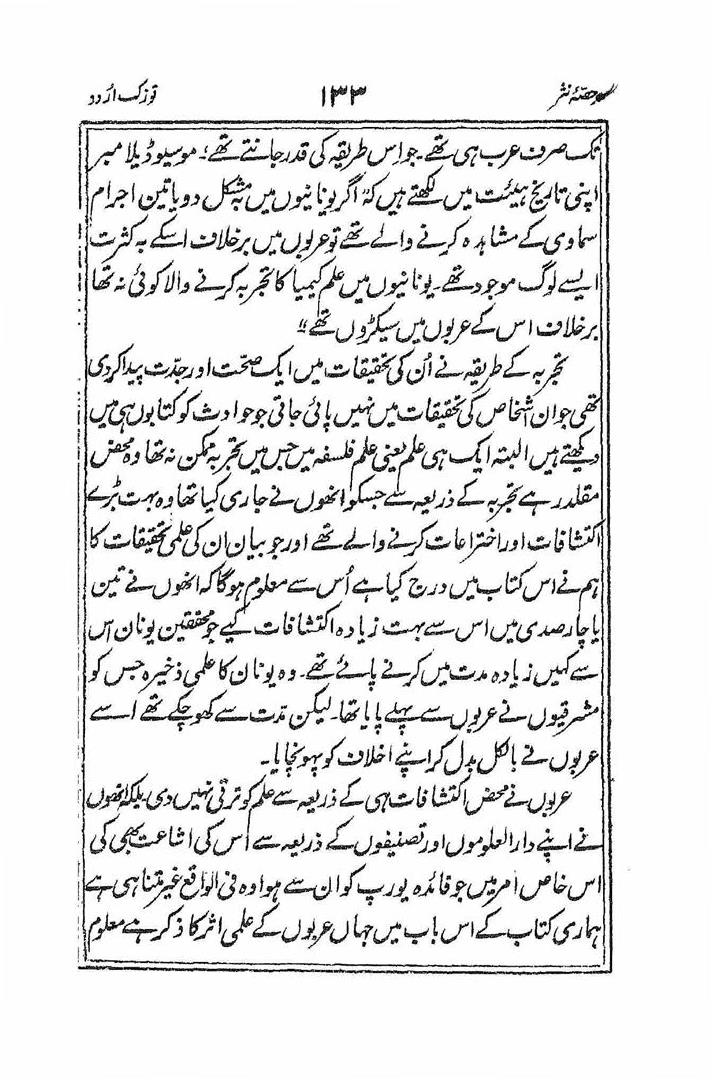 حصۂ نثر ۱۳۳ توزک اردو
تک صرف عرب ہی تھے۔ جو اس طریقہ کی قدر جانتے تھے؛ موسیو ڈیلامبر
اپنی تاریخ ہیئت میں لکھتے ہیں کہ "اگر یونانیوں میں بہ مشکل دو یا تین اجرام
سماوی کے مشاہدہ کرنے والے تھے تو عربوں میں برخلاف اسکے بہ کثرت
ایسے لوگ موجود تھے۔ یونانیوں میں علم کیمیا کا تجربہ کرنے والا کوئی نہ تھا
برخلاف اس کے عربوں میں سیکڑوں تھے"
تجربہ کے طریقہ نے اُن کی تحقیقات میں ایک صحت اور جدّت پیدا کردی
تھی جو ان اشخاص کی تحقیقات میں نہیں پائی جاتی جو حوادث کو کتابوں ہی میں
دیکھتے ہیں البتہ ایک ہی علم یعنی علم فلسفہ میں جس میں تجربہ ممکن نہ تھا وہ محض
مقلد رہے تجربہ کے ذریعہ سے جسکو انھوں نے جاری کیا تھا وہ بہت بڑے
اکتشافات اور اختراعات کرنے والے تھے اور جو بیان ان کی علمی تحقیقات کا
ہم نے اس کتاب میں درج کیا ہے اُس سے معلوم ہوگا کہ انھوں نے تین
یا چار صدی میں اس سے بہت زیادہ اکتشافات کیے جو محققین یونان اس
سے کہیں زیادہ مدت میں کرنے پائے تھے۔ وہ یونان کا علمی ذخیرہ جس کو
مشرقیوں نے عربوں سے پہلے پایا تھا۔ لیکن مدّت سے کھو چکے تھے اسے
عربوں نے بالکل بدل کر اپنے اخلاف کو پہونچایا۔
عربوں نے محض اکتشافات ہی کے ذریعہ سے علم کو ترقی نہیں دی بلکہ انھوں
نے اپنے دارالعلوموں اور تصنیفوں کے ذریعہ سے اُس کی اشاعت بھی کی
اس خاص امر میں جو فائدہ یورپ کو ان سے ہوا وہ فی الواقع غیر متناہی ہے
ہماری کتاب کے اس باب میں جہاں عربوں کے علمی اثر کا ذکر ہے معلوم